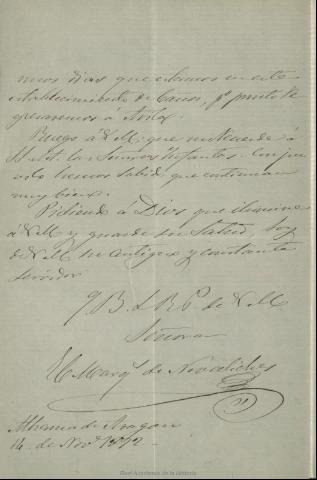 mos dias que estamos en este
establecimiento de Baños, pº pronto re
gresaremos á Avila.
Ruego á V.M. que me recuerde á
SS. AA. las Señoras Infantas. Con gus
to he sabido que continuan
muy bien.
Pidiendo á Dios que ilumine
á V.M y guarde su salud, soy
de V.M su antiguo y constante
servidor
Q B L R P de V M
Señora
El Marqs de Novaliches
Alhama de Aragon
14 de Nove 1872
Real Academia de la Historia